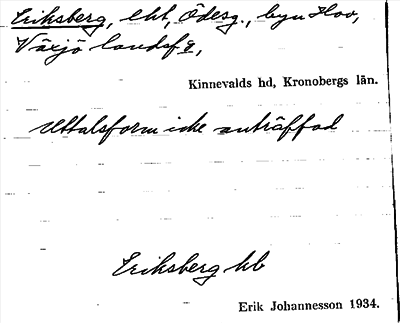 Eriksberg, lht, Ödesg., byn Hov,
Växjö landsf g,
Kinnevalds hd, Kronobergs län.
Uttalsform icke anträffad
Eriksberg hb
Erik Johannesson 1934.